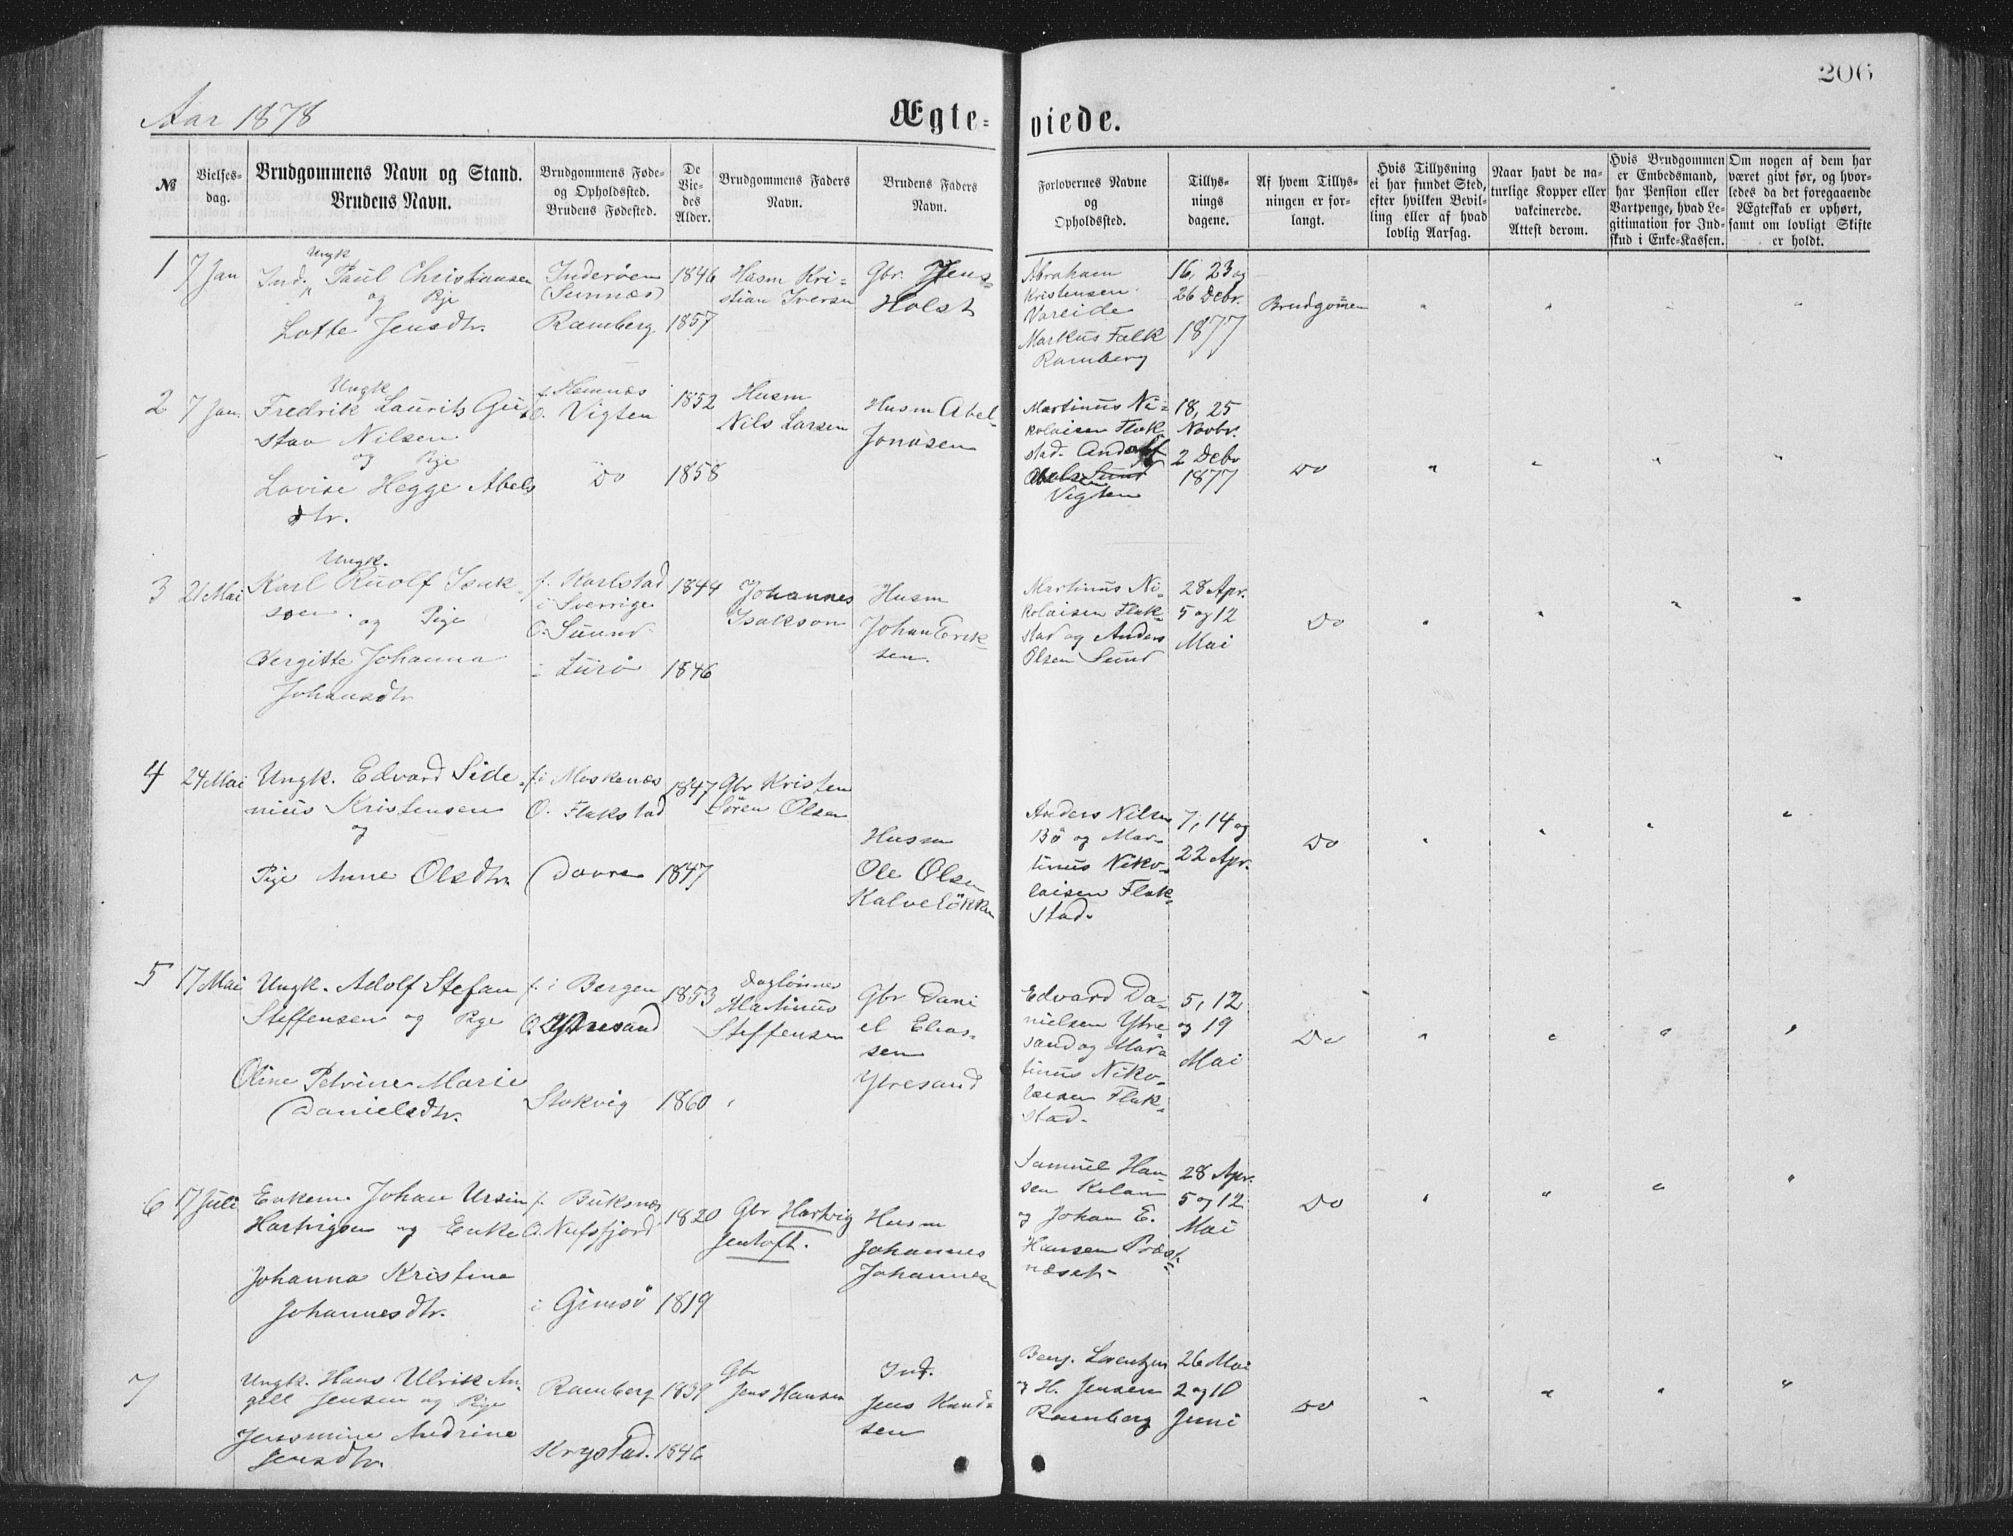 206
Aar 1878
Ægteviede.
№
Vielsesdag.
Brudgommens Navn og Stand.
Brudens Navn.
Brudgommens Føde-
og Opholdssted.
Brudens Fødested.
De
Vie-
des
Alder.
Brudgommens Faders
Navn.
Brudens Faders
Navn.
Forlovernes Navne
og
Opholdssted.
Tillys-
nings
dagene.
Af hvem Tillys-
ningen er for-
langt.
Hvis Tillysning
ei har fundet Sted,
efter hvilken Bevil-
ling eller af hvad
lovlig Aarsag.
Naar havt de na-
turlige Kopper eller
vakcinerede.
Attest derom.
Hvis Brudgommen
er Embedsmand,
har Pension eller
Vartpenge, hvad Le-
gitimation for Ind-
skud i Enke-Kassen.
Om nogen af dem har
været givt før, og hvor-
ledes da det foregaaende
Ægteskab er ophørt,
samt om lovligt Skifte
er holdt.
1
7 Jan
Ungk
Ind. Paul Christiansen
og Pige
Lotte Jensdtr.
Inderøen
(Sunnæs)
Ramberg
1846
1857
Husm Kri-
stian Iversen
Gbr. Jens
Holst
Abraham
Kristensen
Vareide
Markus Falk
Ramberg
16, 23 og
26 Debr.
1877
Brudgommen
2
7 Jan.
Ungk
Fredrik Laurits Gu-
stav Nilsen
og Pige
Lovise Hegge Abels
dtr.
f. Hemnæs
O. Vigten
Do
1852
1858
Husm
Nils Larsen
Husm Abel
Jonasen
Martinus Ni-
kolaisen Flak-
stad.
Vigten
18, 25
Novbr.
2 Debr
1877
Do
3
21 Mai
Ungk.
Karl Ruolf Isak-
soen. og Pige
Bergitte Johanna
Johansdtr
f. Karlstad
i Sverrige
O. Suund
i Lurö
1844
1846
Johannes
Isakson
Husm
Johan Erik-
sen.
Martinus Ni-
kolaisen Flak-
stad og Anders
Olsen Sund
28 Apr.
5 og 12
Mai
Do
4
24 Mai
Ungk. Edvard Side-
nius Kristensen
og
Pige Anne Olsdtr.
f. i Moskenæs
O. Flakstad
Dovre
1847
1847
Gbr Kristen
Sören Olsen
Husm
Ole Olsen
Kalvelökken
Anders Nilsen
Bö og Mar-
tinus Niko-
laisen Flak-
stad.
7, 14 og
22 Apr.
Do
5
17 Mai
Ungk. Adolf Stefan
Steffensen og Pige
Oline Petrine Marie
Danielsdtr.
f. i Bergen
O. Ytresand
Stokvig
1853
1860
Daglönner
Martinus
Steffensen
Gbr Dani
el Elias-
sen
Ytresand
Edvard Da-
nielsen Ytre-
sand og Mar-
tinus Niko-
laisen Flak-
stad.
5, 12
og 19
Mai
Do
6
17 Juli
Enkem. Johan Ursin
Hartvigsen og Enke
Johanna Kristine
Johannesdtr.
f. Buksnæs
O. Nufsfjord
i Gimsö
1820
1819
Gbr Hartvig
Jentoft.
Husm
Johannes
Johannesen
Samuel Han-
sen Kilan
og Johan E.
Hansen Præst-
næset
28 Apr.
5 og 12
Mai
Do
7
Ungk. Hans Ulrik An-
gell Jensen og Pige
Jensmine Andrine
Jensdtr.
Ramberg
Krystad.
1839
1846
Gbr
Jens Hansen
Ind.
Jens Knud-
sen
Benj. Lorentzen
og H. Jensen
Ramberg
26 Mai
2 og 10
Juni
Do